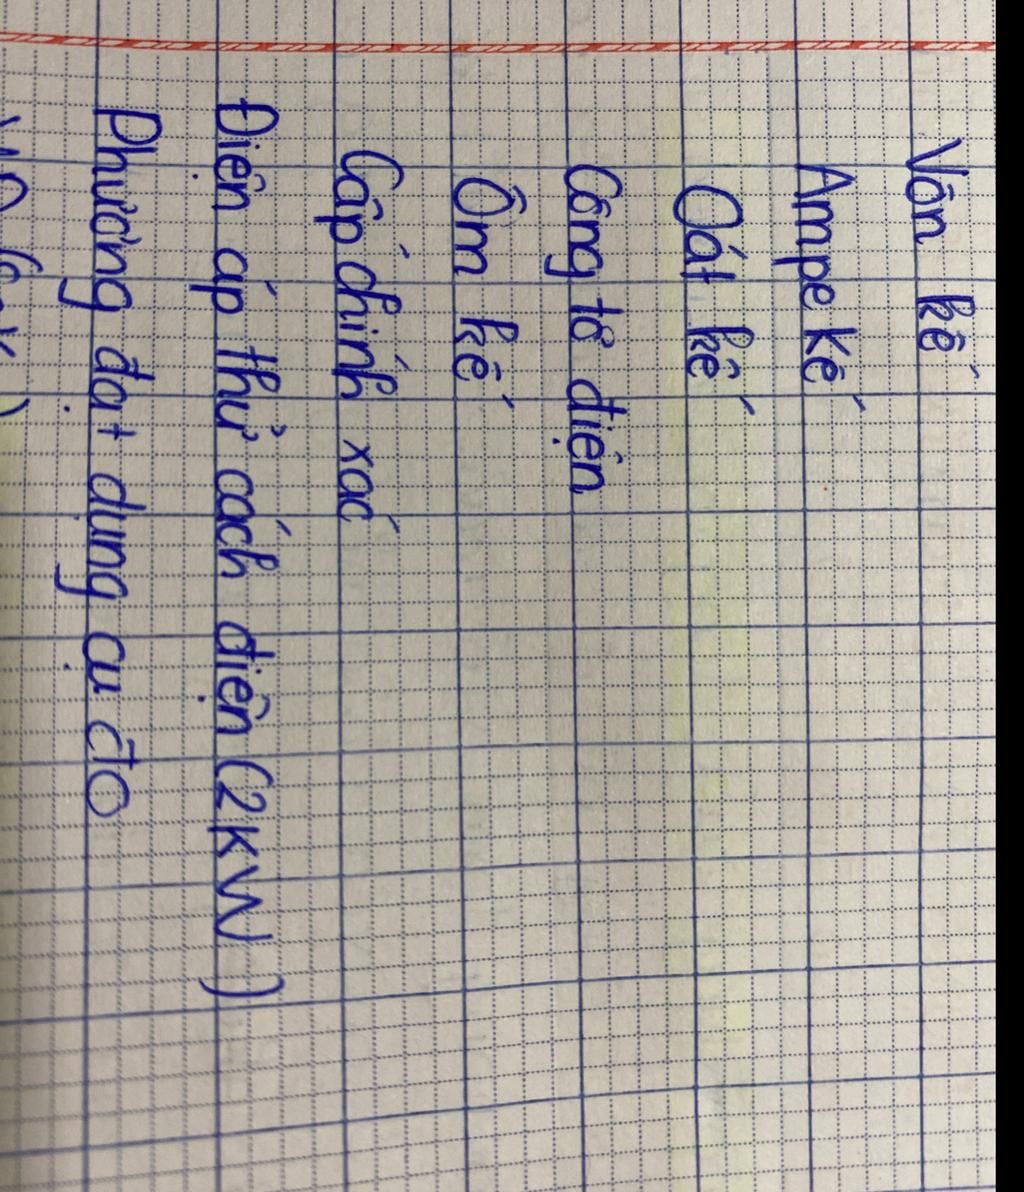 Vôn kế
Ampe Kế
Oát kế
Công tơ điện
Ôm kế
Cấp chính xác
Điện áp thử cách điện (2KW)
Phương đặt dụng cụ đo